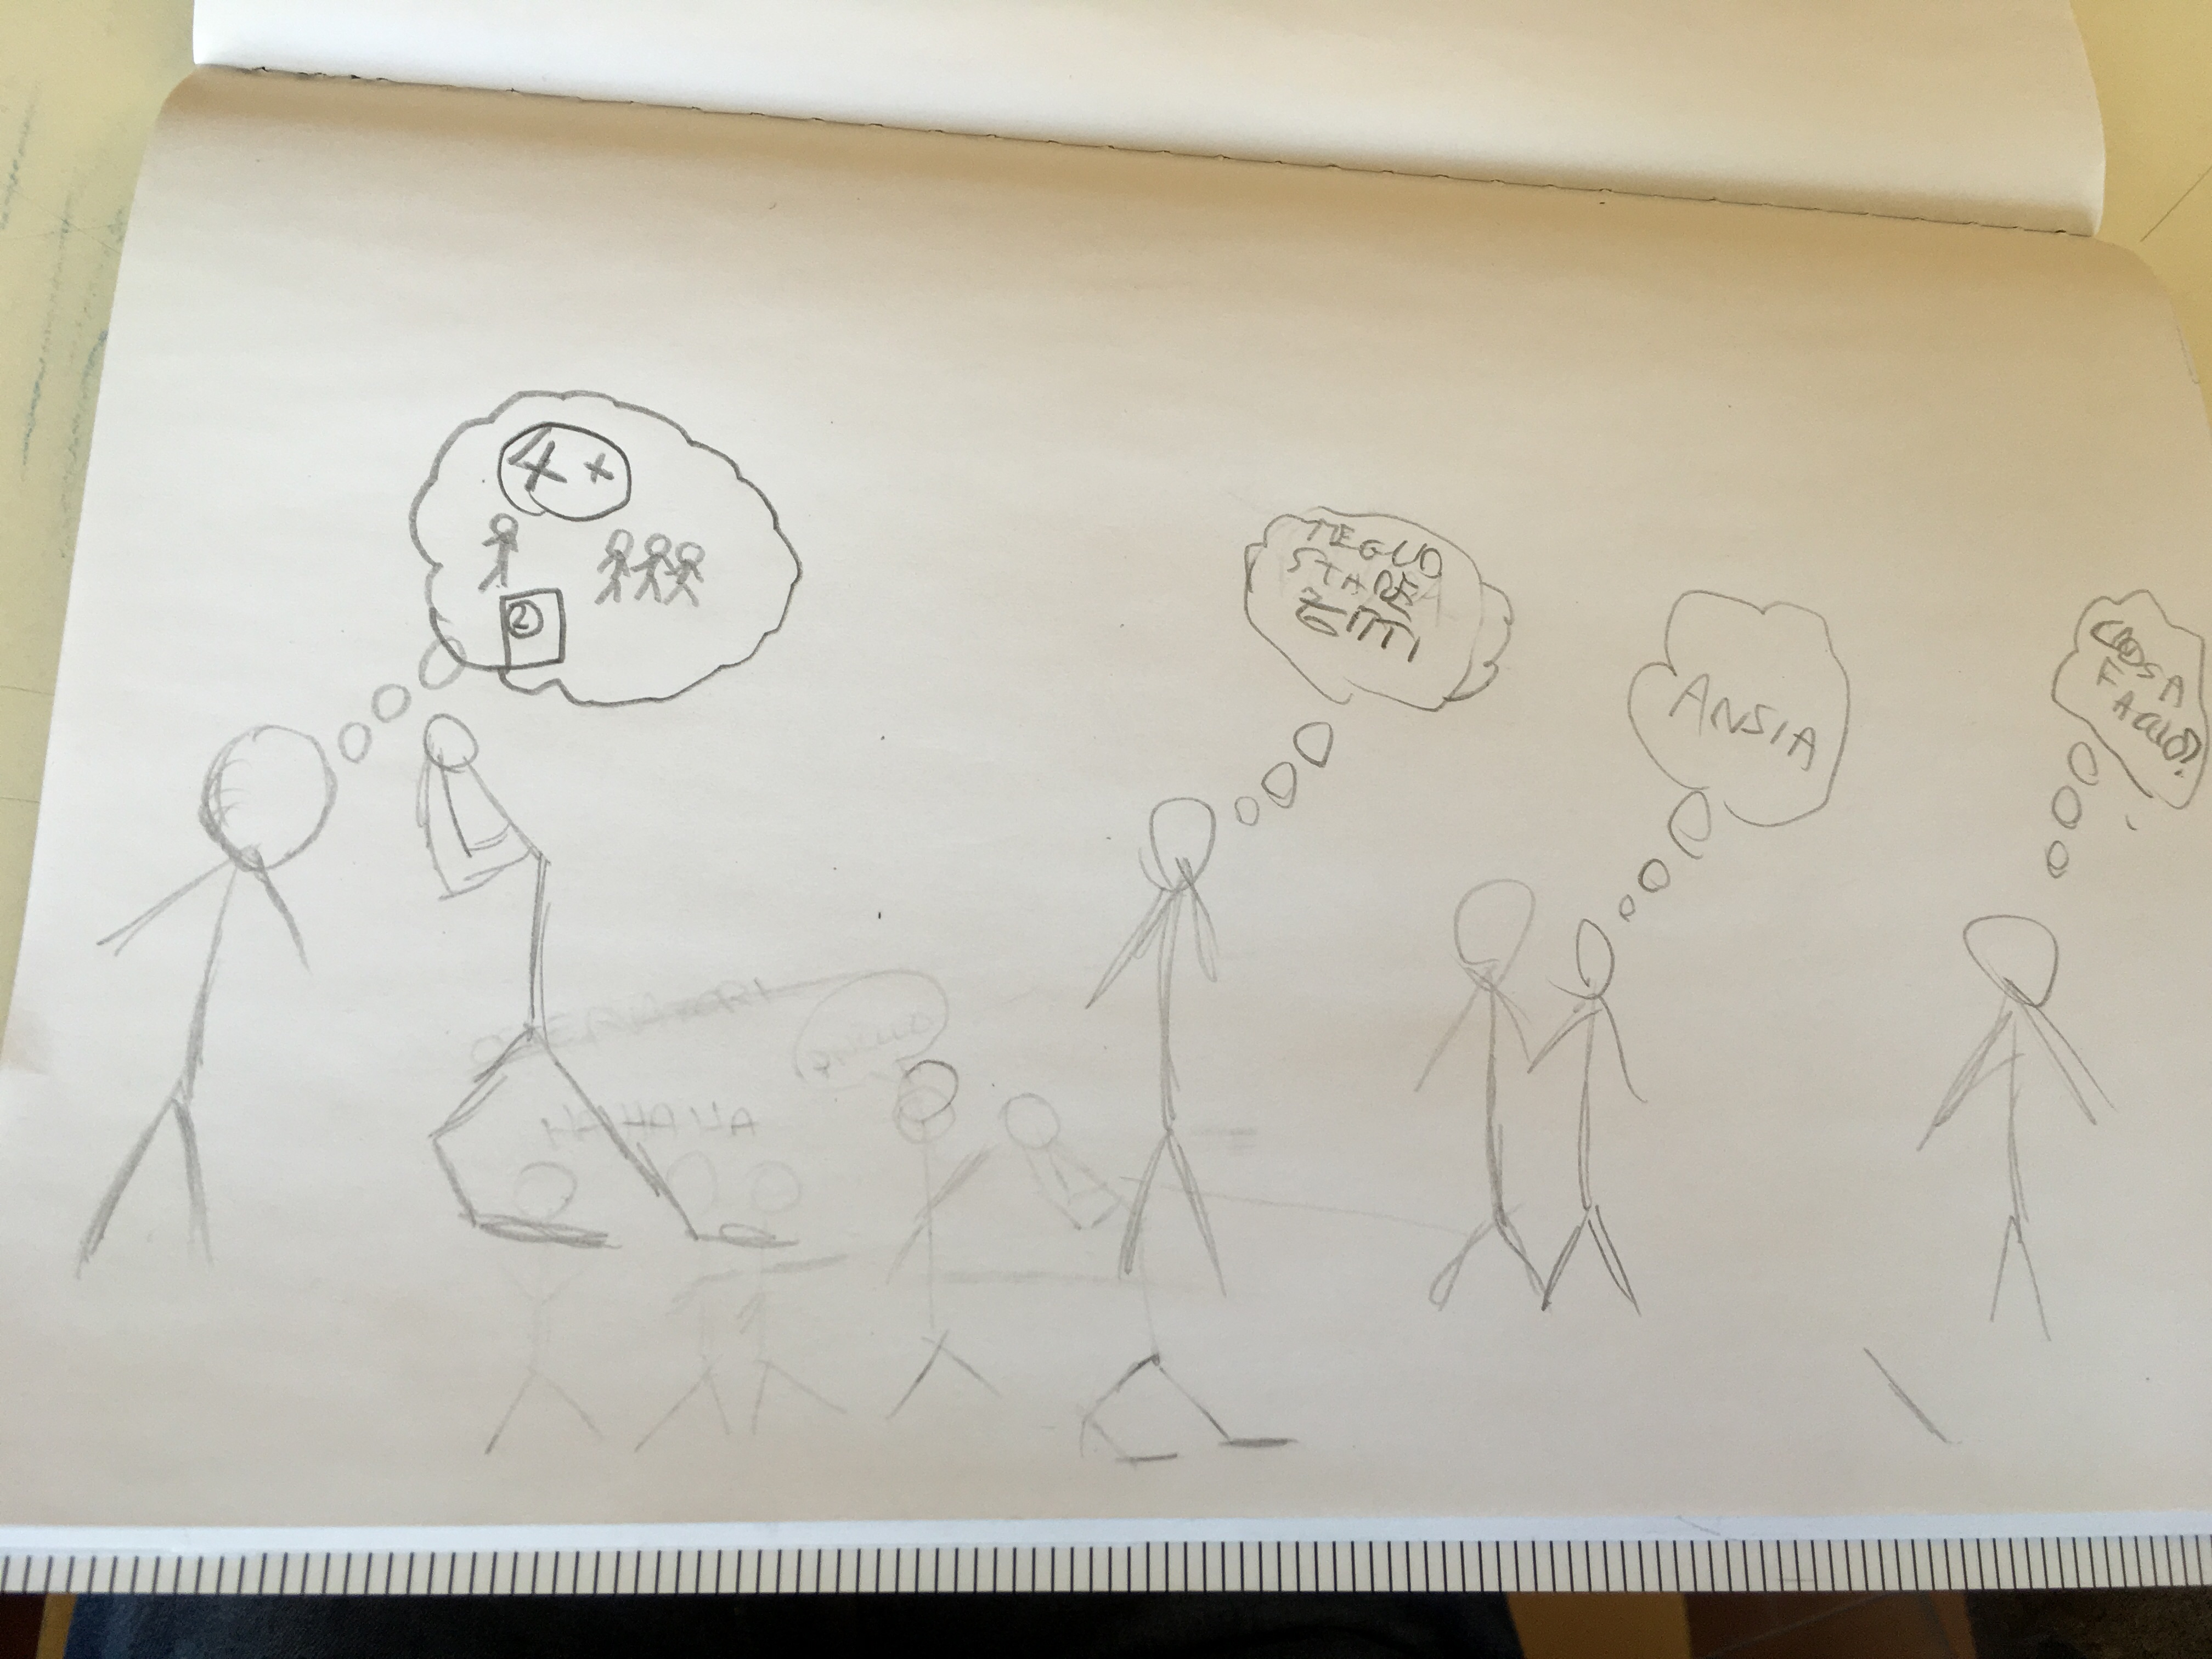 4+
2
MEGLIO
STARE
ZITTI
ANSIA
COSA
FACCIO?